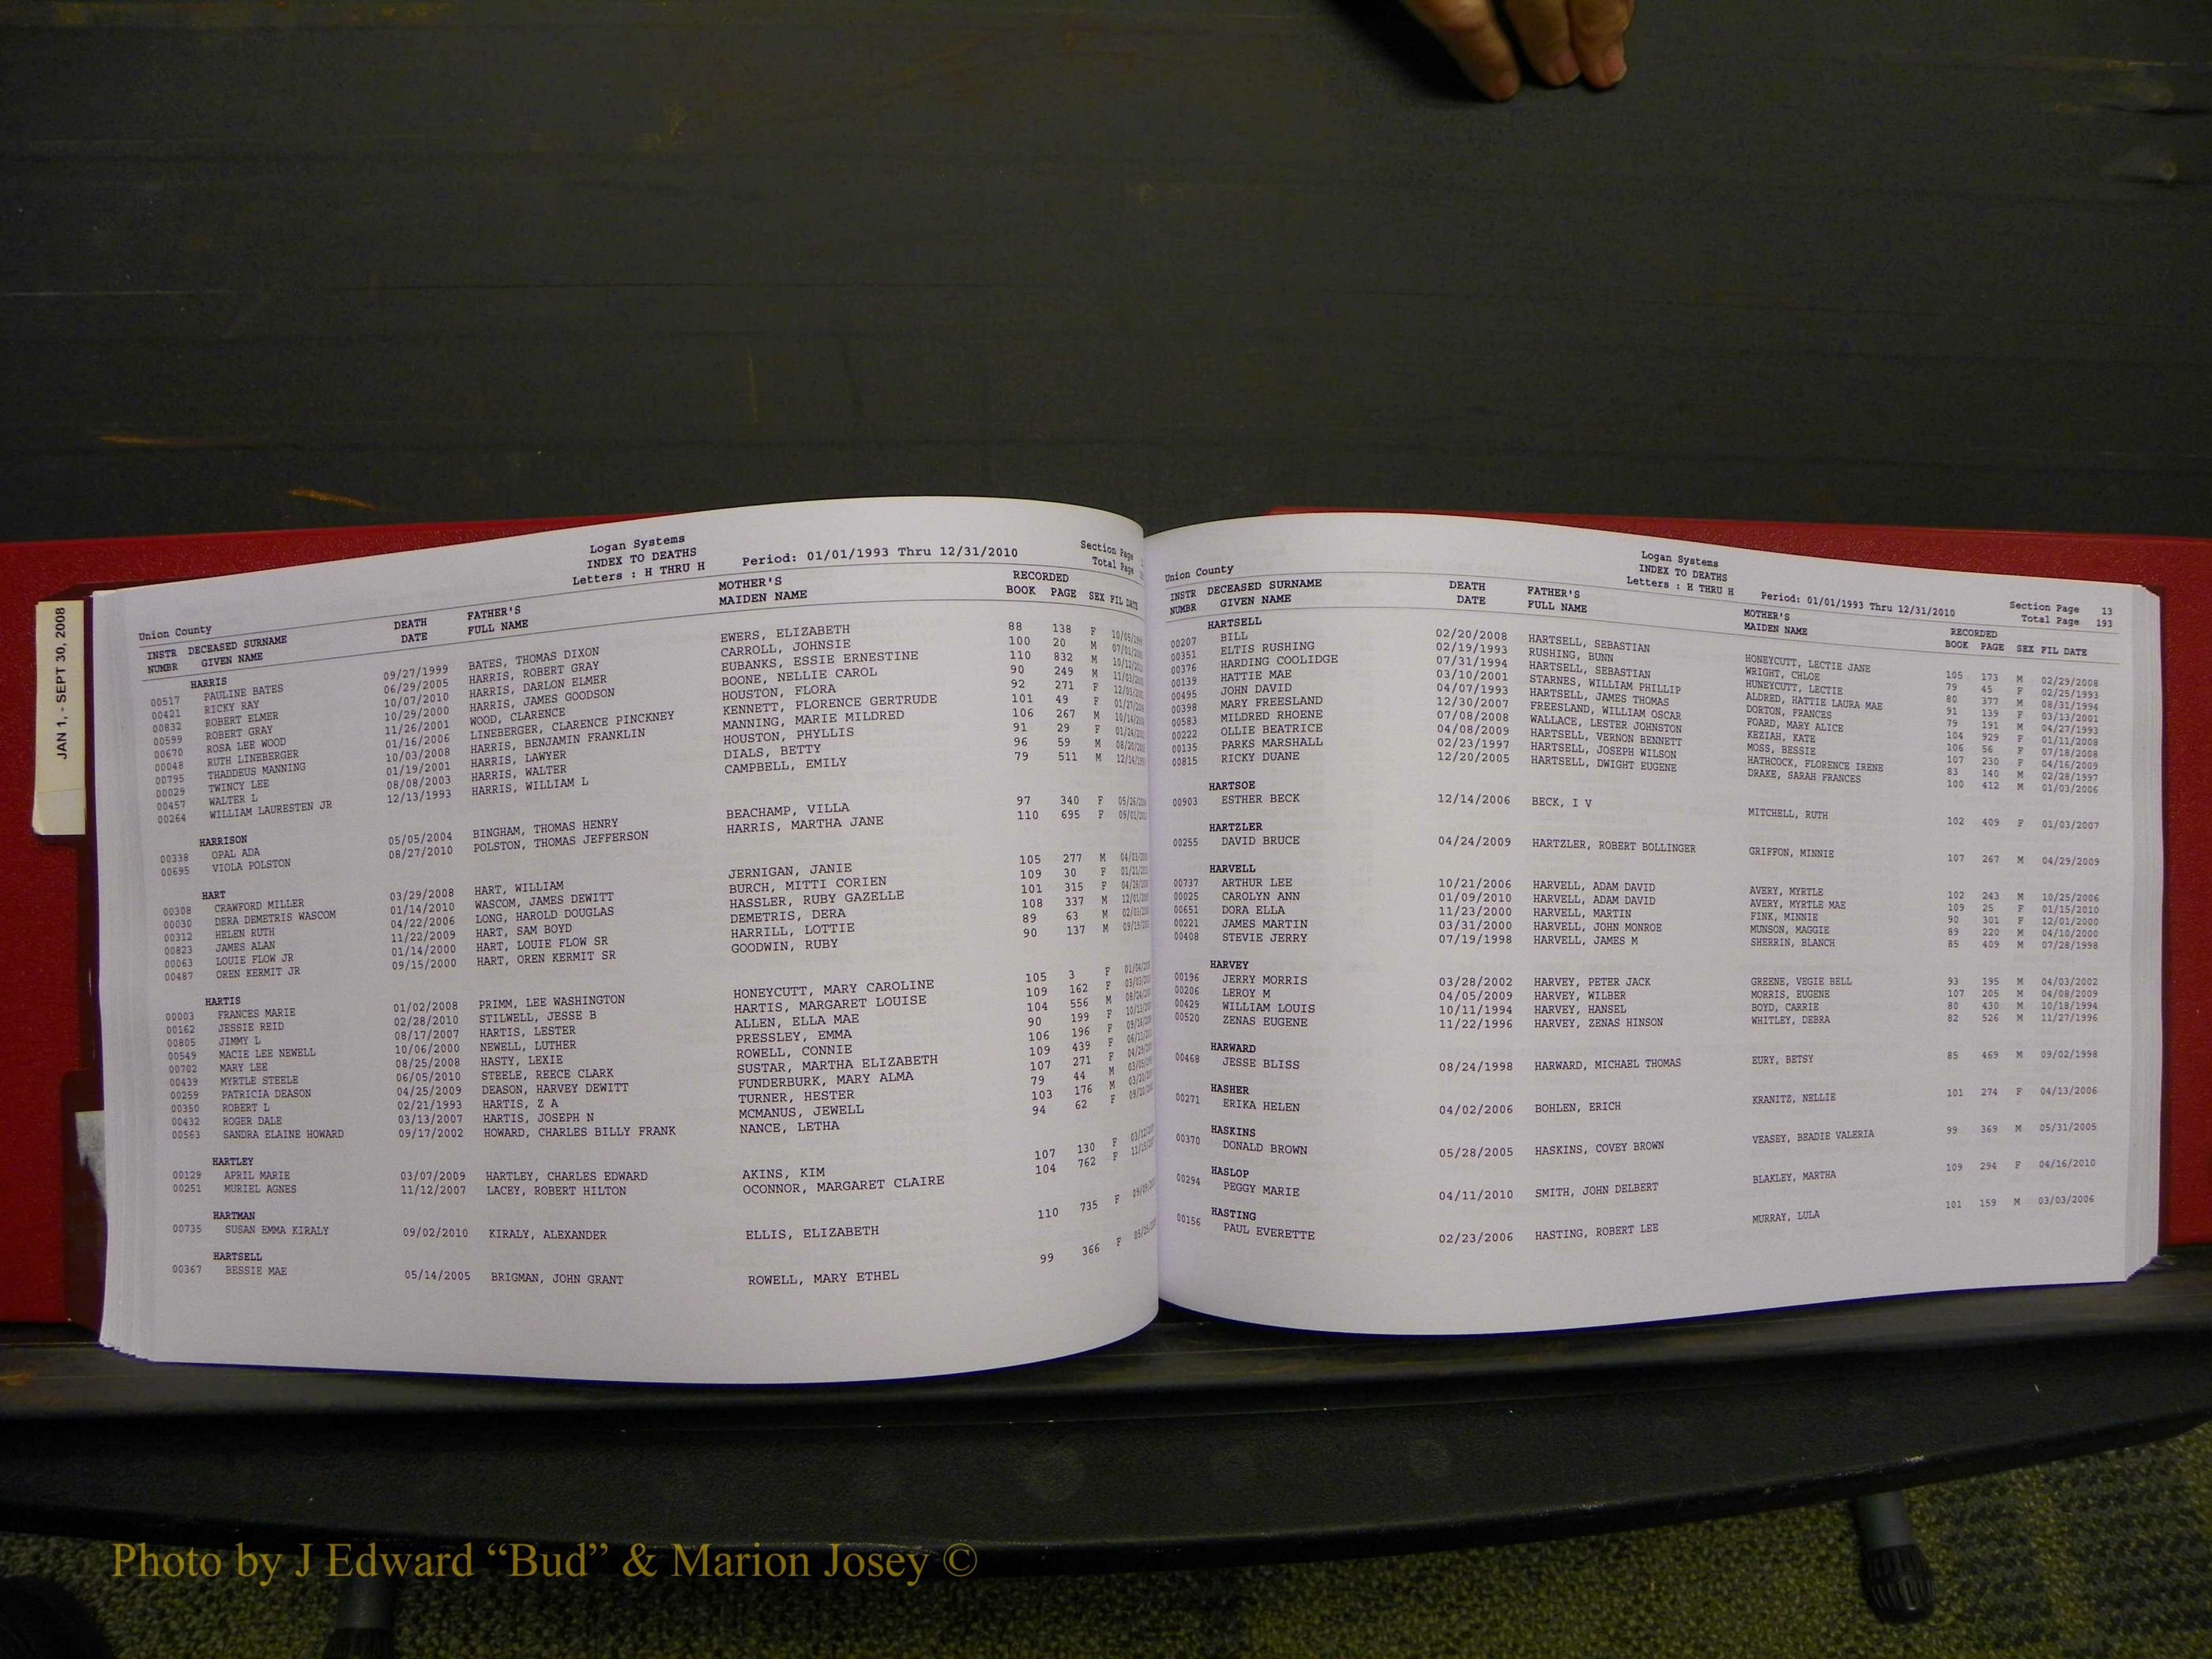 JAN 1, - SEPT 30, 2008
Logan Systems
INDEX TO DEATHS
Letters : H THRU H
Period: 01/01/1993 Thru 12/31/2010
Section Page
Total Page
Union County
INSTR DECEASED SURNAME DEATH FATHER'S MOTHER'S RECORDED
NUMBR GIVEN NAME DATE FULL NAME MAIDEN NAME BOOK PAGE SEX FIL DATE
HARRIS
00517 PAULINE BATES 09/27/1999 BATES, THOMAS DIXON EWERS, ELIZABETH 88 138 F
00421 RICKY RAY 06/29/2005 HARRIS, ROBERT GRAY CARROLL, JOHNSIE 100 20 M
00832 ROBERT ELMER 10/07/2010 HARRIS, DARLON ELMER EUBANKS, ESSIE ERNESTINE 110 832 M
00599 ROBERT GRAY 10/29/2000 HARRIS, JAMES GOODSON BOONE, NELLIE CAROL 90 249 M
00670 ROSA LEE WOOD 11/26/2001 WOOD, CLARENCE HOUSTON, FLORA 92 271 F
00048 RUTH LINEBERGER 01/16/2006 LINEBERGER, CLARENCE PINCKNEY KENNETT, FLORENCE GERTRUDE 101 49 F
00795 THADDEUS MANNING 10/03/2008 HARRIS, BENJAMIN FRANKLIN MANNING, MARIE MILDRED 106 267 M
00029 TWINCY LEE 01/19/2001 HARRIS, LAWYER HOUSTON, PHYLLIS 91 29 F
00457 WALTER L 08/08/2003 HARRIS, WALTER DIALS, BETTY 96 59 M
00264 WILLIAM LAURESTEN JR 12/13/1993 HARRIS, WILLIAM L CAMPBELL, EMILY 79 511 M
HARRISON
00338 OPAL ADA 05/05/2004 BINGHAM, THOMAS HENRY BEACHAMP, VILLA 97 340 F
00695 VIOLA POLSTON 08/27/2010 POLSTON, THOMAS JEFFERSON HARRIS, MARTHA JANE 110 695 F
HART
00308 CRAWFORD MILLER 03/29/2008 HART, WILLIAM JERNIGAN, JANIE 105 277 M
00030 DERA DEMETRIS WASCOM 01/14/2010 WASCOM, JAMES DEWITT BURCH, MITTI CORIEN 109 30 F
00312 HELEN RUTH 04/22/2006 LONG, HAROLD DOUGLAS HASSLER, RUBY GAZELLE 101 315 F
00823 JAMES ALAN 11/22/2009 HART, SAM BOYD DEMETRIS, DERA 108 337 M
00063 LOUIE FLOW JR 01/14/2000 HART, LOUIE FLOW SR HARRILL, LOTTIE 89 63 M
00487 OREN KERMIT JR 09/15/2000 HART, OREN KERMIT SR GOODWIN, RUBY 90 137 M
HARTIS
00003 FRANCES MARIE 01/02/2008 PRIMM, LEE WASHINGTON HONEYCUTT, MARY CAROLINE 105 3 F
00162 JESSIE REID 02/28/2010 STILWELL, JESSE B HARTIS, MARGARET LOUISE 109 162 F
00805 JIMMY L 08/17/2007 HARTIS, LESTER ALLEN, ELLA MAE 104 556 M
00549 MACIE LEE NEWELL 10/06/2000 NEWELL, LUTHER PRESSLEY, EMMA 90 199 F
00702 MARY LEE 08/25/2008 HASTY, LEXIE ROWELL, CONNIE 106 196 F
00439 MYRTLE STEELE 06/05/2010 STEELE, REECE CLARK SUSTAR, MARTHA ELIZABETH 109 439 F
00259 PATRICIA DEASON 04/25/2009 DEASON, HARVEY DEWITT FUNDERBURK, MARY ALMA 107 271 F
00350 ROBERT L 02/21/1993 HARTIS, Z A TURNER, HESTER 79 44 M
00432 ROGER DALE 03/13/2007 HARTIS, JOSEPH N MCMANUS, JEWELL 103 176 M
00563 SANDRA ELAINE HOWARD 09/17/2002 HOWARD, CHARLES BILLY FRANK NANCE, LETHA 94 62 F
HARTLEY
00129 APRIL MARIE 03/07/2009 HARTLEY, CHARLES EDWARD AKINS, KIM 107 130 F
00251 MURIEL AGNES 11/12/2007 LACEY, ROBERT HILTON OCONNOR, MARGARET CLAIRE 104 762 F
HARTMAN
00735 SUSAN EMMA KIRALY 09/02/2010 KIRALY, ALEXANDER ELLIS, ELIZABETH 110 735 F
HARTSELL
00367 BESSIE MAE 05/14/2005 BRIGMAN, JOHN GRANT ROWELL, MARY ETHEL 99 366 F
Logan Systems
INDEX TO DEATHS
Letters : H THRU H
Period: 01/01/1993 Thru 12/31/2010
Section Page 13
Total Page 193
Union County
INSTR DECEASED SURNAME DEATH FATHER'S MOTHER'S RECORDED
NUMBR GIVEN NAME DATE FULL NAME MAIDEN NAME BOOK PAGE SEX FIL DATE
HARTSELL
00207 BILL 02/20/2008 HARTSELL, SEBASTIAN HONEYCUTT, LECTIE JANE 105 173 M 02/29/2008
00351 ELTIS RUSHING 02/19/1993 RUSHING, BUNN WRIGHT, CHLOE 79 45 F 02/25/1993
00376 HARDING COOLIDGE 07/31/1994 HARTSELL, SEBASTIAN HUNEYCUTT, LECTIE 80 377 M 08/31/1994
00139 HATTIE MAE 03/10/2001 STARNES, WILLIAM PHILLIP ALDRED, HATTIE LAURA MAE 91 139 F 03/13/2001
00495 JOHN DAVID 04/07/1993 HARTSELL, JAMES THOMAS DORTON, FRANCES 79 191 M 04/27/1993
00398 MARY FREESLAND 12/30/2007 FREESLAND, WILLIAM OSCAR FOARD, MARY ALICE 104 929 F 01/11/2008
00583 MILDRED RHOENE 07/08/2008 WALLACE, LESTER JOHNSTON KEZIAH, KATE 106 56 F 07/18/2008
00222 OLLIE BEATRICE 04/08/2009 HARTSELL, VERNON BENNETT MOSS, BESSIE 107 230 F 04/16/2009
00135 PARKS MARSHALL 02/23/1997 HARTSELL, JOSEPH WILSON HATHCOCK, FLORENCE IRENE 83 140 M 02/28/1997
00815 RICKY DUANE 12/20/2005 HARTSELL, DWIGHT EUGENE DRAKE, SARAH FRANCES 100 412 M 01/03/2006
HARTSOE
00903 ESTHER BECK 12/14/2006 BECK, I V MITCHELL, RUTH 102 409 F 01/03/2007
HARTZLER
00255 DAVID BRUCE 04/24/2009 HARTZLER, ROBERT BOLLINGER GRIFFON, MINNIE 107 267 M 04/29/2009
HARVELL
00737 ARTHUR LEE 10/21/2006 HARVELL, ADAM DAVID AVERY, MYRTLE 102 243 M 10/25/2006
00025 CAROLYN ANN 01/09/2010 HARVELL, ADAM DAVID AVERY, MYRTLE MAE 109 25 F 01/15/2010
00651 DORA ELLA 11/23/2000 HARVELL, MARTIN FINK, MINNIE 90 301 F 12/01/2000
00221 JAMES MARTIN 03/31/2000 HARVELL, JOHN MONROE MUNSON, MAGGIE 89 220 M 04/10/2000
00408 STEVIE JERRY 07/19/1998 HARVELL, JAMES M SHERRIN, BLANCH 85 409 M 07/28/1998
HARVEY
00196 JERRY MORRIS 03/28/2002 HARVEY, PETER JACK GREENE, VEGIE BELL 93 195 M 04/03/2002
00206 LEROY M 04/05/2009 HARVEY, WILBER MORRIS, EUGENE 107 205 M 04/08/2009
00429 WILLIAM LOUIS 10/11/1994 HARVEY, HANSEL BOYD, CARRIE 80 430 M 10/18/1994
00520 ZENAS EUGENE 11/22/1996 HARVEY, ZENAS HINSON WHITLEY, DEBRA 82 526 M 11/27/1996
HARWARD
00468 JESSE BLISS 08/24/1998 HARWARD, MICHAEL THOMAS EURY, BETSY 85 469 M 09/02/1998
HASHER
00271 ERIKA HELEN 04/02/2006 BOHLEN, ERICH KRANITZ, NELLIE 101 274 F 04/13/2006
HASKINS
00370 DONALD BROWN 05/28/2005 HASKINS, COVEY BROWN VEASEY, BEADIE VALERIA 99 369 M 05/31/2005
HASLOP
00294 PEGGY MARIE 04/11/2010 SMITH, JOHN DELBERT BLAKLEY, MARTHA 109 294 F 04/16/2010
HASTING
00156 PAUL EVERETTE 02/23/2006 HASTING, ROBERT LEE MURRAY, LULA 101 159 M 03/03/2006
Photo by J Edward “Bud” & Marion Josey ©